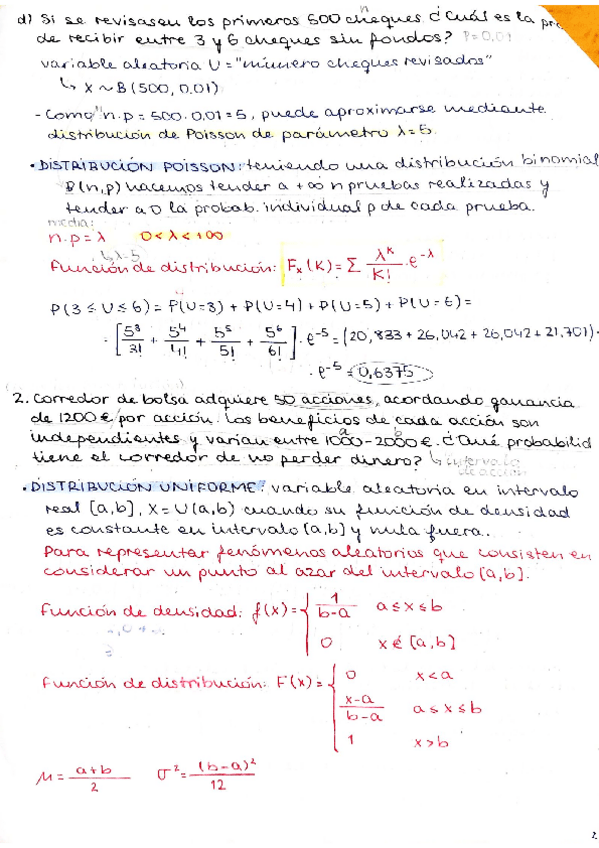 n
d) Si se revisasen los primeros 500 cheques ¿Cuál es la
de recibir entre 3 y 6 cheques sin fondos? P=0,01
variable aleatoria U = "número cheques revisados"
↳ X ~ B (500, 0.01)
- Como n.p = 500.0.01 = 5, puede aproximarse mediante
distribución de Poisson de parámetro λ = 5.
· DISTRIBUCIÓN POISSON: teniendo una distribución binomial
B(n,p) hacemos tender a +∞ n pruebas realizadas y
tender a 0 la probab. individual p de cada prueba.
media:
n.p = λ 0 < λ < +∞
↳ λ = 5
Función de distribución: Fx (K) = Σ λ^K / K! · e^-λ
P(3 ≤ U ≤ 6) = P(U=3) + P(U=4) + P(U=5) + P(U=6) =
· [5^3/3! + 5^4/4! + 5^5/5! + 5^6/6!] · e^-5 = (20,833 + 26,042 + 26,042 + 21,701) ·
· e^-5 = 0,6375
2. Corredor de bolsa adquiere 50 acciones, acordando ganancia
de 1200 € por acción. Los beneficios de cada acción son
a b
independientes y varian entre 1000 - 2000 €. ¿Qué probabilid
tiene el corredor de no perder dinero? ↳ intervalo
de acción
· DISTRIBUCIÓN UNIFORME: variable aleatoria en intervalo
real [a,b], X = U(a,b) cuando su función de densidad
es constante en intervalo [a,b] y nula fuera.
Para representar fenómenos aleatorios que consisten en
considerar un punto al azar del intervalo [a,b].
Función de densidad: f(x) = { 1/(b-a) a ≤ x ≤ b
0 x ∉ [a,b]
Función de distribución: F(x) = { 0 x < a
(x-a)/(b-a) a ≤ x ≤ b
1 x > b
μ = (a+b)/2 σ² = (b-a)²/12
2